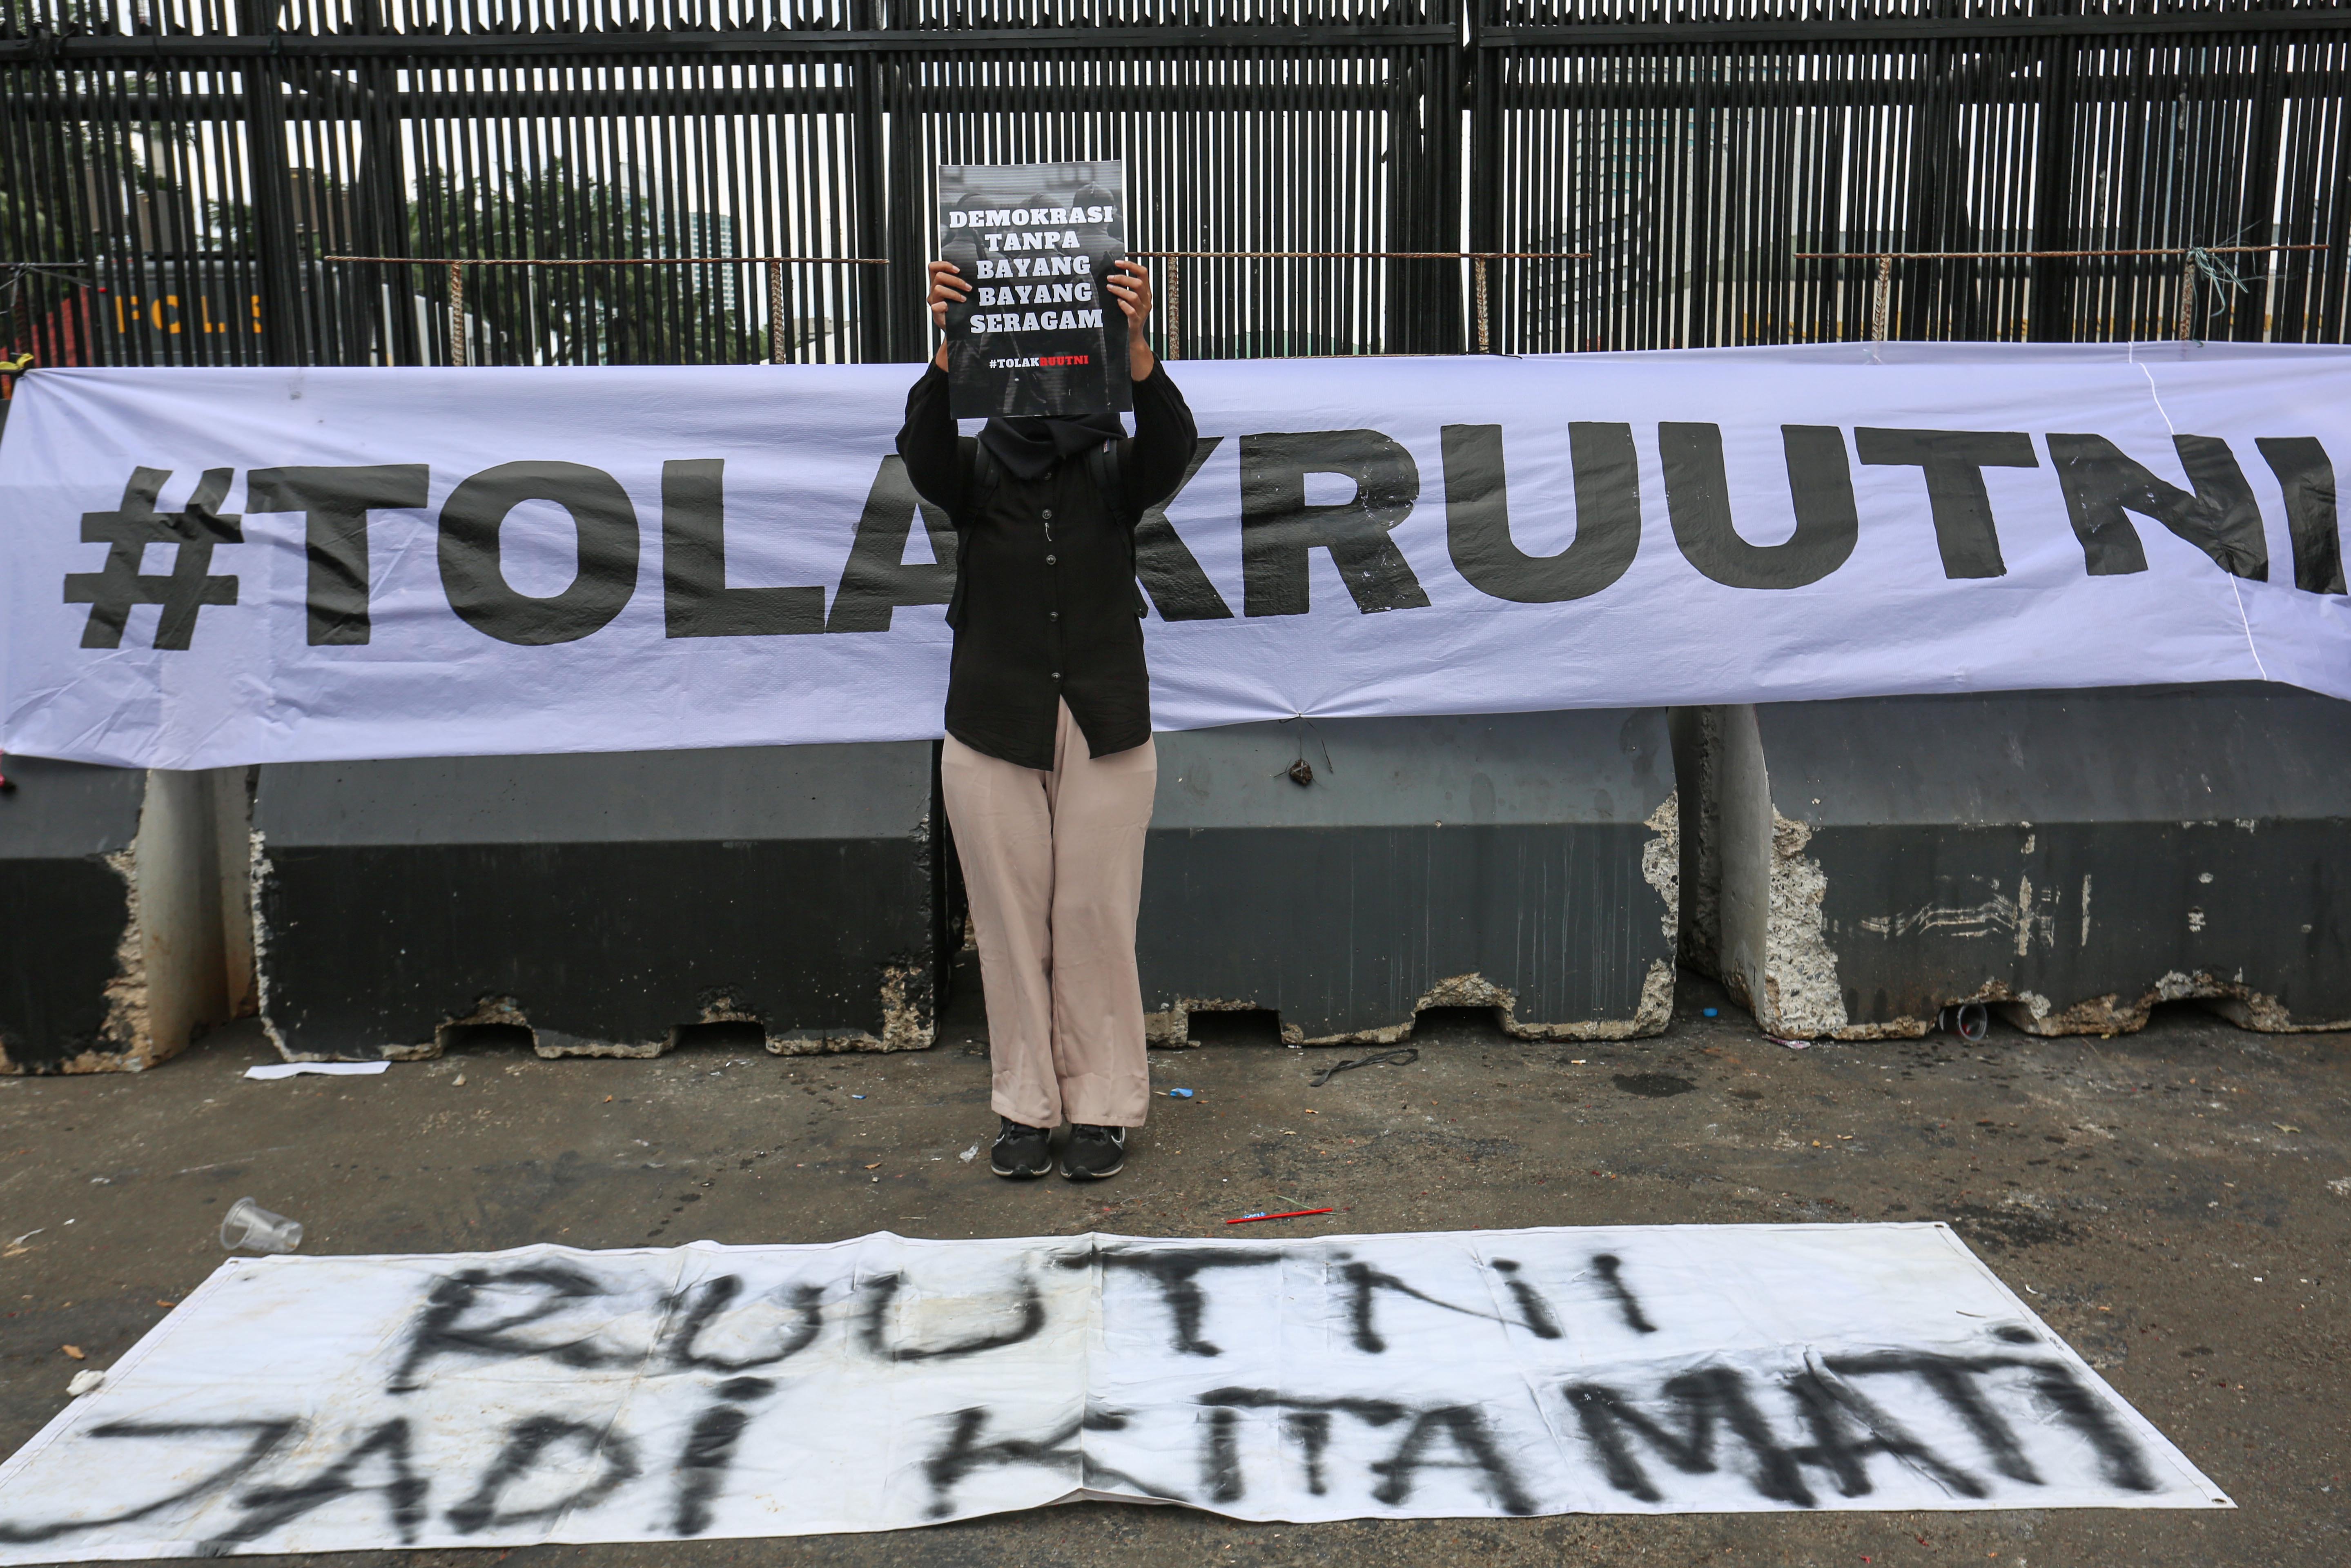 DEMOKRASI
TANPA
BAYANG
BAYANG
SERAGAM
#TOLAKRUUTNI
#TOLAKRUUTNI
RUU TNI
JADI KITA MATI